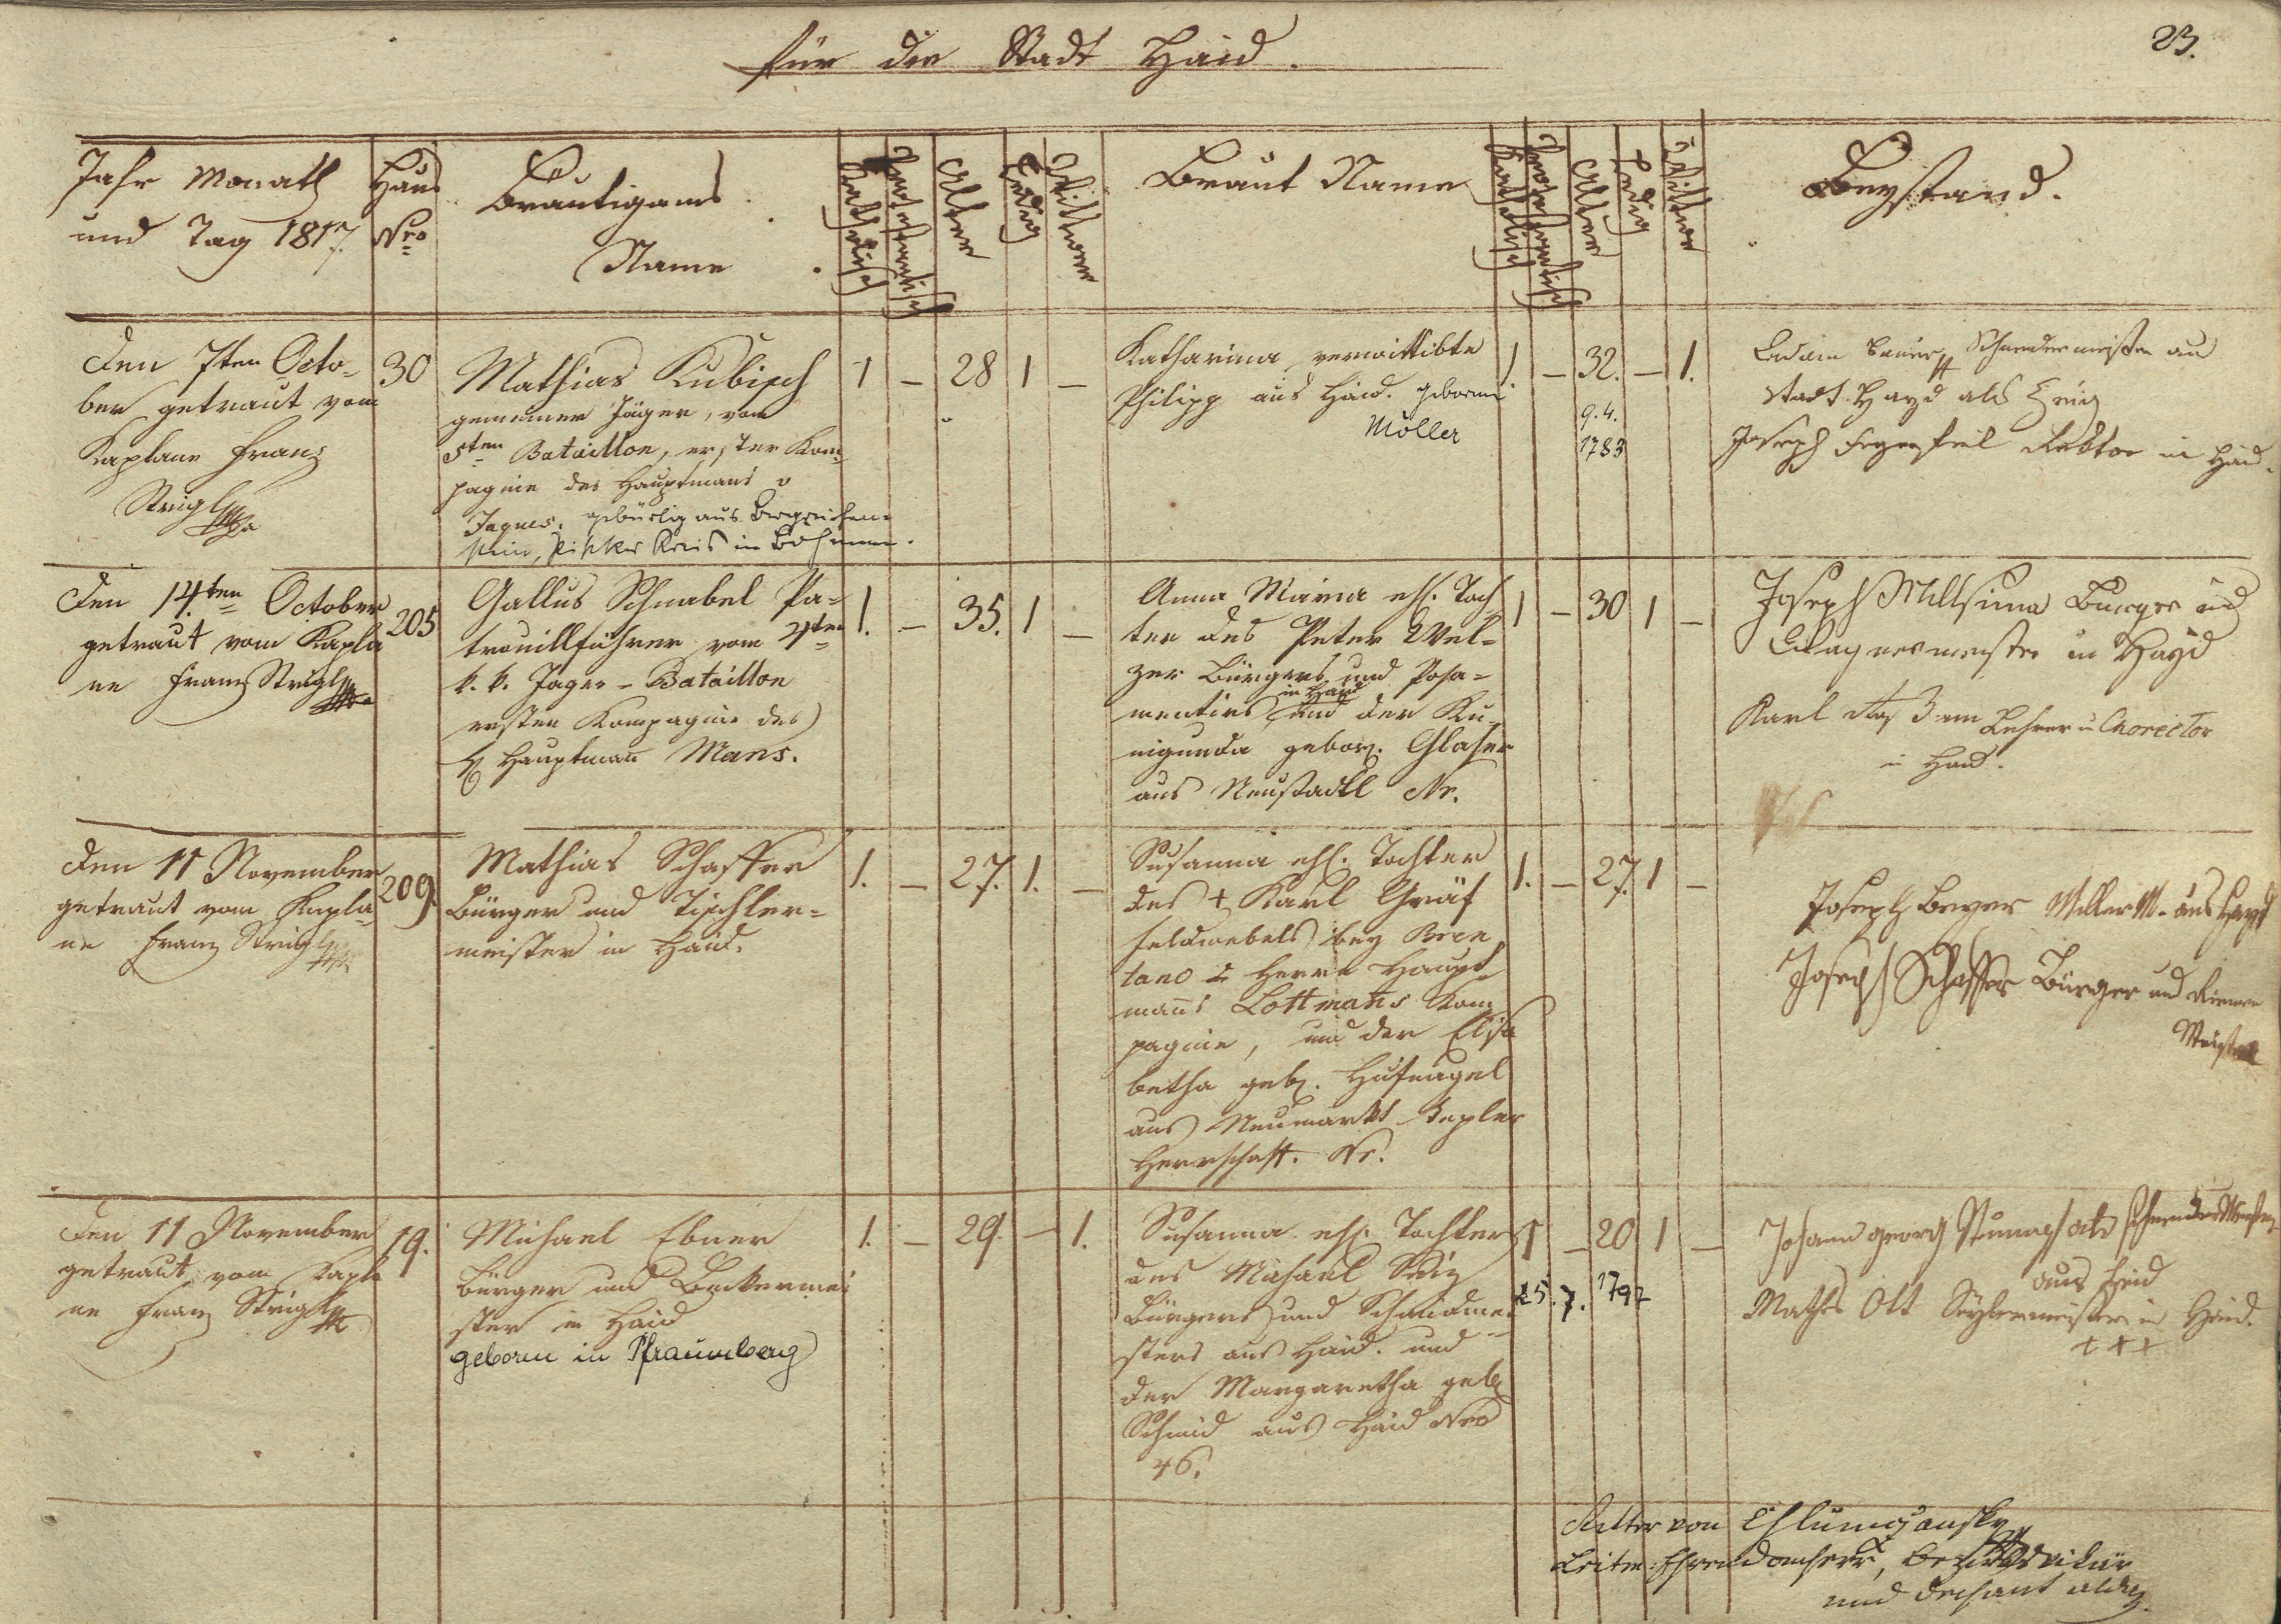 für die Stadt Haid.
23.
Jahr Monath
und Tag 1817.
Haus
Nro
Bräutigams
Name
Katholisch
Protestantisch
Alter
Ledig
Wittwer
Braut Name
Katholisch
Protestantisch
Alter
Ledig
Wittwe
Beystand.
Den 7ten Octo-
ber getraut vom
Kaplane Franz
Strigl
30
Mathias Kubisch
gemeiner Jäger, vom
5ten Bataillon, erster Kom-
pagnie des Hauptmans v
Jaques. gebürtig aus Bergreichen-
stein, Pisker Kreis in Böhmen.
1 – 28 1 –
Katharina verwittibte
Philipp aus Haid. geborne
Möller
1 – 32. – 1.
9.4.
1783
Adam Schneidermeister aus
Stadt Hayd als Zeug
Joseph Rektor in Haid.
Den 14ten October
getraut vom Kapla
ne Franz Strigl
205
Gallus Schnabel Pa-
trouillführer vom 4ten
k. k. Jäger-Bataillon
ersten Kompagnie des
H Hauptmañ Mans.
1. – 35. 1 –
Anna Maria ehl. Toch
ter des Peter Wel-
zer Bürgers und Posa-
in Haid
mentirs und der Ku-
nigunda gebor. Glaser
aus Neustadtl Nr.
1 – 30 1 –
Joseph Millsima Burger und
Wagnermeister in Hayd
Karl Lehrer u Chorector
in Haid.
Den 11 November
getraut vom Kapla-
ne Franz Strigl
209
Mathias Schaffer
Bürger und Tischler-
meister in Haid.
1. – 27. 1. –
Susanna ehl. Tochter
des + Karl Gräf
Feldwebels bey Bren
tano Herrn Haupt
mañs Lottmañs Kom
pagnie, und der Elisa
betha geb. Hufnagel
aus Neumarkt Tepler
Herrschaft. Nr.
1. – 27. 1 –
Joseph Beyer Miller M. aus Hayd
Joseph Schaffer Bürger und Riemer
Meister
Den 11 November
getraut vom Kapla
ne Franz Strigl
19.
Michael Ebner
Bürger und Beckermei
ster in Haid
geboren in Pfraumberg
1. – 29. – 1.
Susanna ehl. Tochter
des Michael
Bürgers und Schmidmei-
sters aus Haid. und
der Margaretha geb
Schmid aus Haid Nro
46.
1 – 20 1 –
25. 7. 1797
Johann Georg Schneider Meister
aus Heid
Mathes Ott Seylermeister in Haid.
+++
Ritter von Chlumczansky
Leitm: Ehrendomherr, Bezirksvikär
und Dechant allda